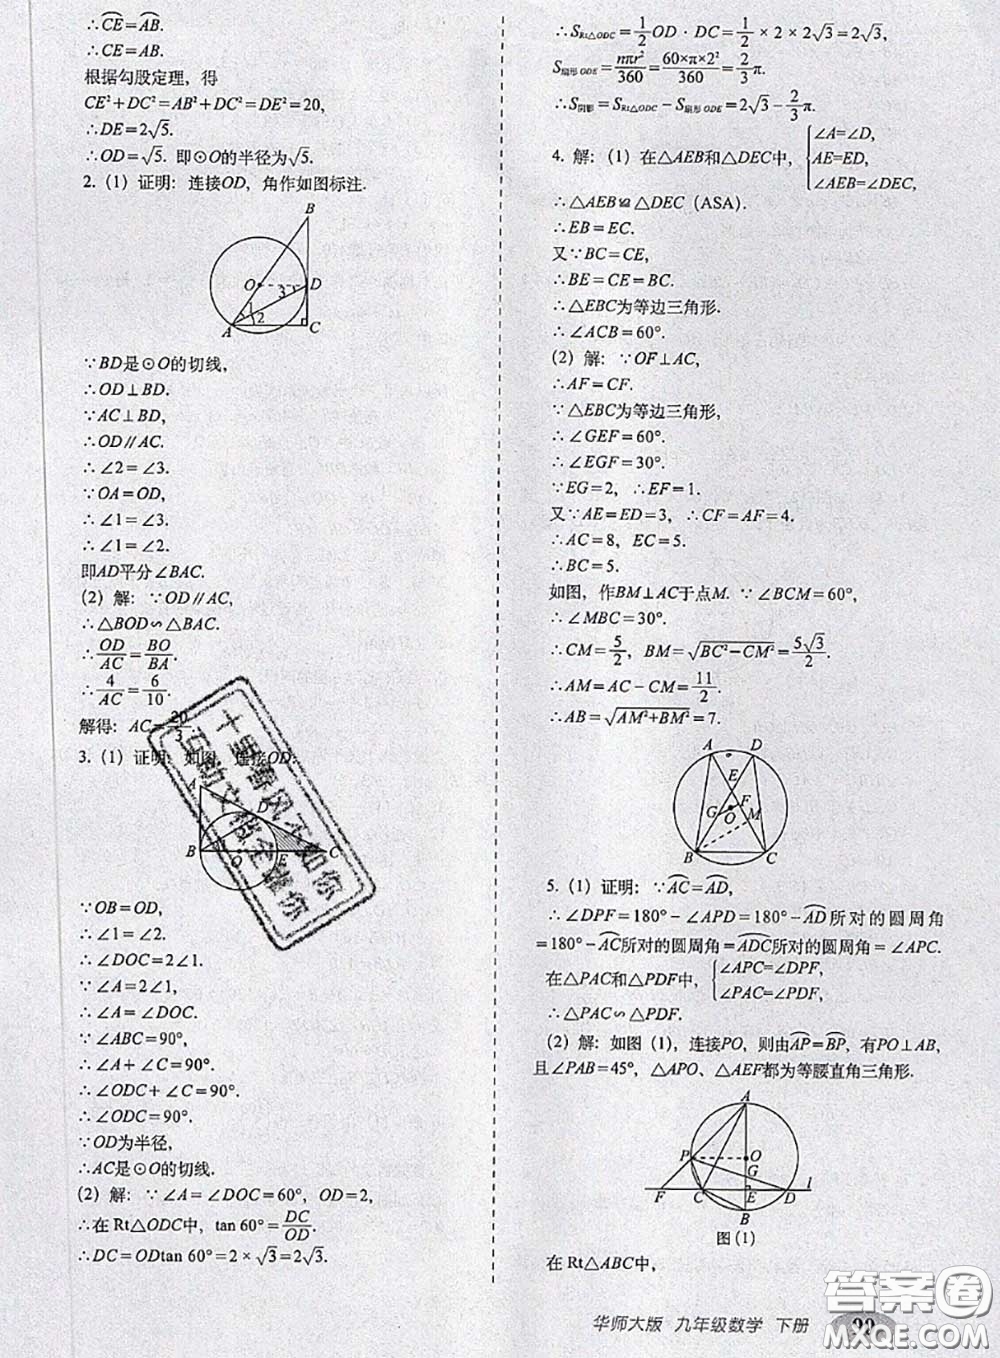 ∴⌒CE=⌒AB.
∴CE=AB.
根据勾股定理，得
CE²+DC²=AB²+DC²=DE²=20,
∴DE=2√5.
∴OD=√5. 即⊙O的半径为√5.
2.（1）证明：连接OD，角作如图标注.
B
O 3 D
2
A C
∵BD是⊙O的切线，
∴OD⊥BD.
∵AC⊥BD,
∴OD∥AC.
∴∠2=∠3.
∵OA=OD,
∴∠1=∠3.
∴∠1=∠2.
即AD平分∠BAC.
(2) 解：∵OD∥AC,
∴△BOD∽△BAC.
∴OD/AC=BO/BA.
∴4/AC=6/10.
解得：AC=20/3.
3.（1）证明：如图，连接OD.
A
D
B O E C
∵OB=OD,
∴∠1=∠2.
∴∠DOC=2∠1.
∵∠A=2∠1,
∴∠A=∠DOC.
∵∠ABC=90°,
∴∠A+∠C=90°.
∴∠ODC+∠C=90°.
∴∠ODC=90°.
∵OD为半径，
∴AC是⊙O的切线.
(2) 解：∵∠A=∠DOC=60°，OD=2,
∴在Rt△ODC中，tan 60°=DC/OD.
∴DC=ODtan 60°=2×√3=2√3.
∴S Rt△ODC=1/2 OD·DC=1/2×2×2√3=2√3,
S扇形ODE=nπr²/360=60×π×2²/360=2/3π.
∴S阴影=S Rt△ODC－S扇形ODE=2√3－2/3π.
4. 解：(1) 在△AEB和△DEC中，{∠A=∠D, AE=ED, ∠AEB=∠DEC,
∴△AEB≌△DEC (ASA).
∴EB=EC.
又∵BC=CE,
∴BE=CE=BC.
∴△EBC为等边三角形.
∴∠ACB=60°.
(2) 解：∵OF⊥AC,
∴AF=CF.
∵△EBC为等边三角形，
∴∠GEF=60°.
∴∠EGF=30°.
∵EG=2，∴EF=1.
又∵AE=ED=3，∴CF=AF=4.
∴AC=8，EC=5.
∴BC=5.
如图，作BM⊥AC于点M. ∵∠BCM=60°,
∴∠MBC=30°.
∴CM=5/2，BM=√(BC²－CM²)=5√3/2.
∴AM=AC－CM=11/2.
∴AB=√(AM²+BM²)=7.
A D
E
G F
O M
B C
5.（1）证明：∵⌒AC=⌒AD,
∴∠DPF=180°－∠APD=180°－⌒AD所对的圆周角
=180°－⌒AC所对的圆周角=⌒ADC所对的圆周角=∠APC.
在△PAC和△PDF中，{∠APC=∠DPF, ∠PAC=∠PDF,
∴△PAC∽△PDF.
(2) 解：如图 (1)，连接PO，则由⌒AP=⌒BP，有PO⊥AB,
且∠PAB=45°，△APO、△AEF都为等腰直角三角形.
A
P O
G
F C E D l
B
图 (1)
在Rt△ABC中，
华师大版 九年级数学 下册
十里春风不如你
互动文槪全錐你
答案圈
MXQE.COM